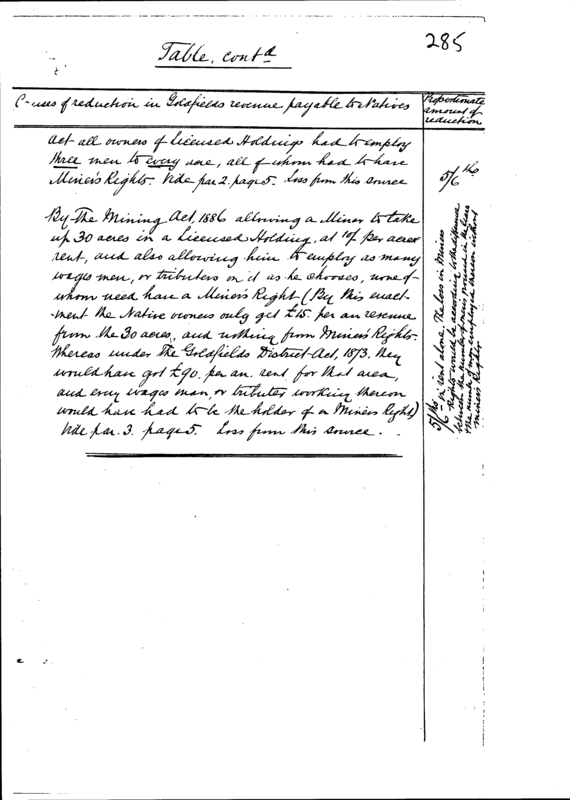 285
Table, contd
Causes of reduction in Goldfields revenue payable to Natives
Proportionate
amount of
reduction
Act all owners of Licensed Holdings had to employ
three men to every one, all of whom had to have
Miner's Rights. Vide par 2. page 5. Loss from this source
5/6ths
By The Mining Act, 1886 allowing a Miner to take
up 30 acres in a Licensed Holding, at 10/ per acre
rent, and also allowing him to employ as many
wages men, or tributers on it as he chooses, none of
whom need have a Miner's Right (By this enact-
ment the Native owners only get £15. per an revenue
from the 30 acres, and nothing from Miner's Rights.
Whereas under The Goldfields District Act, 1873. they
would have got £90. per an. rent for that area,
and every wages man, or tributer working thereon
would have had to be the holder of a Miner's Right)
Vide par. 3. page 5. Loss from this source.
5/6ths in rent alone. The loss in Miners
Rights would be according to the difference
between the number of men provided in the lease
the number of men employed thereon without
miner's Rights